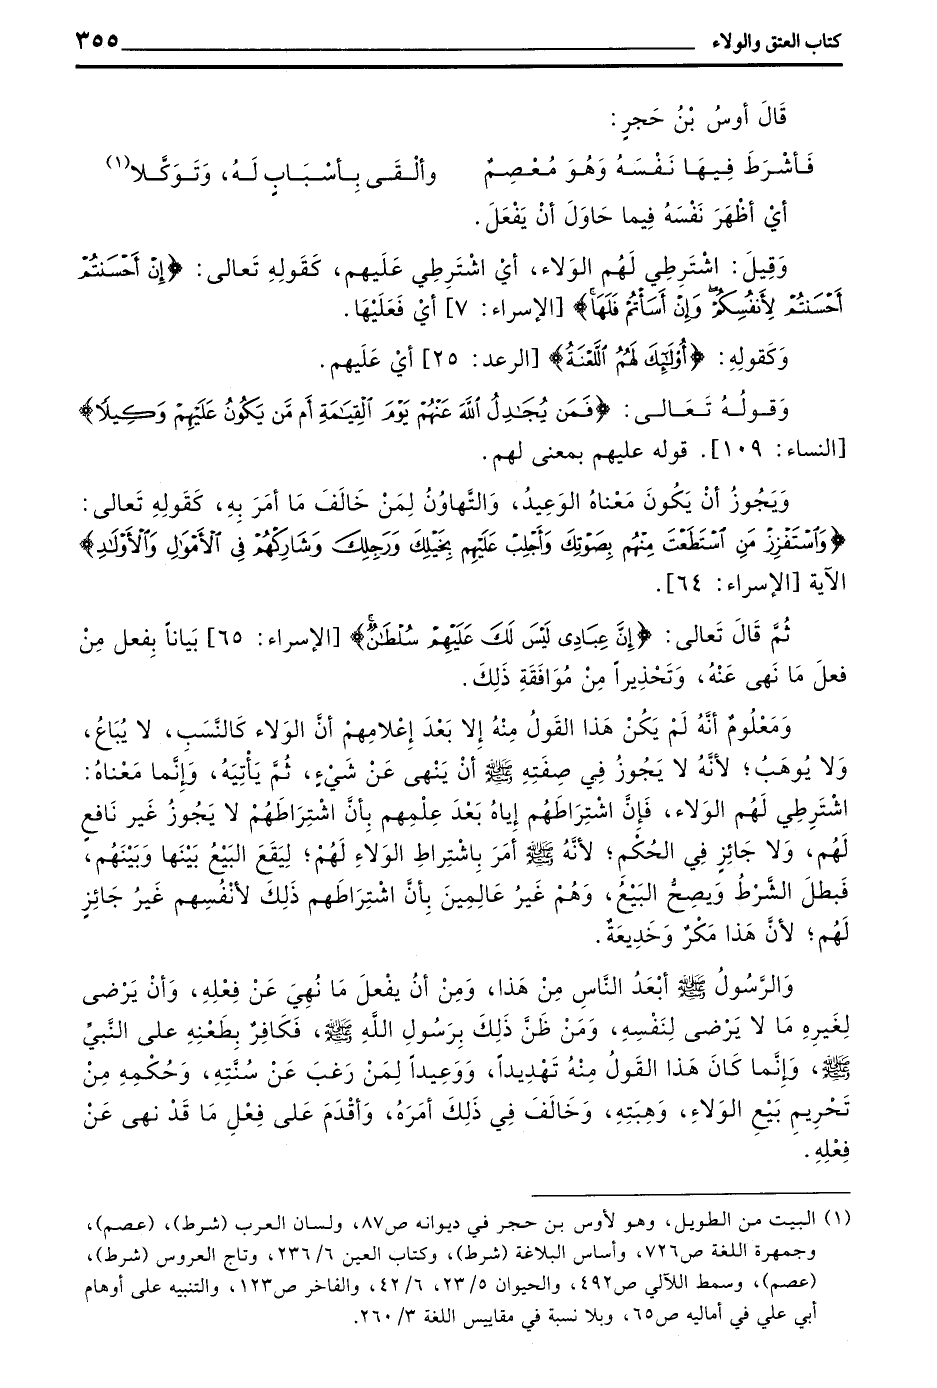 كتاب العتق والولاء ٣٥٥
قَالَ أوسُ بْنُ حَجرٍ :
فَأشْرَطَ فِيهَا نَفْسَهُ وَهُوَ مُعْصِمٌ وألْقَى بِأسْبَابٍ لَهُ، وَتَوَكَّلا(١)
أيْ أظْهَرَ نَفْسَهُ فِيما حَاوَلَ أنْ يَفْعَلَ.
وَقِيلَ: اشْتَرِطِي لَهُم الوَلاء، أيْ اشْتَرِطِي عَلَيهم، كَقَولِهِ تَعالى: ﴿إِنْ أَحْسَنتُمْ
أَحْسَنتُمْ لِأَنفُسِكُمْ ۖ وَإِنْ أَسَأْتُمْ فَلَهَا ۚ﴾ [الإسراء: ٧] أيْ فَعَلَيْهَا.
وَكَقولِهِ: ﴿أُوْلَٰٓئِكَ لَهُمُ ٱللَّعْنَةُ﴾ [الرعد: ٢٥] أيْ عَلَيهم.
وَقولُهُ تَعَالى: ﴿فَمَن يُجَٰدِلُ ٱللَّهَ عَنْهُمْ يَوْمَ ٱلْقِيَٰمَةِ أَم مَّن يَكُونُ عَلَيْهِمْ وَكِيلًا﴾
[النساء: ١٠٩]. قوله عليهم بمعنى لهم.
وَيَجُوزُ أنْ يَكُونَ مَعْناهُ الوَعِيدُ، وَالتَّهاوُنُ لِمَنْ خَالَفَ مَا أمَرَ بِهِ، كَقَولِهِ تَعالى:
﴿وَٱسْتَفْزِزْ مَنِ ٱسْتَطَعْتَ مِنْهُم بِصَوْتِكَ وَأَجْلِبْ عَلَيْهِم بِخَيْلِكَ وَرَجِلِكَ وَشَارِكْهُمْ فِي ٱلْأَمْوَٰلِ وَٱلْأَوْلَٰدِ﴾
الآية [الإسراء: ٦٤].
ثُمَّ قَالَ تَعالى: ﴿إِنَّ عِبَادِى لَيْسَ لَكَ عَلَيْهِمْ سُلْطَٰنٌ ۚ﴾ [الإسراء: ٦٥] بَياناً بِفعل مِنْ
فعلَ مَا نَهى عَنْهُ، وَتَحْذِيراً مِنْ مُوَافَقَةِ ذَلِكَ.
وَمَعْلُومٌ أنَّهُ لَمْ يَكُنْ هَذا القَولُ مِنْهُ إلا بَعْدَ إعْلامِهِمْ أنَّ الوَلاء كَالنَّسَبِ، لا يُبَاعُ،
وَلا يُوهَبُ؛ لأنَّهُ لا يَجُوزُ فِي صِفَتِهِ ﷺ أنْ يَنْهى عَنْ شَيْءٍ، ثُمَّ يَأتِيَهُ، وَإنَّما مَعْناهُ:
اشْتَرِطِي لَهُم الوَلاء، فَإنَّ اشْتِرَاطَهُم إياهُ بَعْدَ عِلْمِهم بِأنَّ اشْتِرَاطَهُمْ لا يَجُوزُ غَير نَافعٍ
لَهُم، وَلا جَائِزٍ فِي الحُكْمِ؛ لأنَّهُ ﷺ أمَرَ بِاشْتِراطِ الوَلاءِ لَهُمْ؛ لِيَقَعَ البَيْعُ بَيْنَها وَبَيْنَهُم،
فَبطلَ الشَّرْطُ وَيصِحُّ البَيْعُ، وَهُمْ غَيرُ عَالِمينَ بِأنَّ اشْتِرَاطَهم ذَلِكَ لأنْفُسِهم غَيرُ جَائِزٍ
لَهُم؛ لأنَّ هَذا مَكْرٌ وَخَدِيعَةٌ.
وَالرَّسُولُ ﷺ أبْعَدُ النَّاسِ مِنْ هَذا، وَمِنْ أنْ يفْعلَ مَا نُهِيَ عَنْ فِعْلِهِ، وَأنْ يَرْضى
لِغَيرِهِ مَا لا يَرْضى لِنَفْسِهِ، وَمَنْ ظَنَّ ذَلِكَ بِرَسُولِ اللَّهِ ﷺ، فَكَافِرٌ بِطَعْنِهِ على النَّبيِّ
ﷺ، وَإنَّما كَانَ هَذا القَولُ مِنْهُ تَهْدِيداً، وَوَعِيداً لِمَنْ رَغَبَ عَنْ سُنَّتِهِ، وَحُكْمِهِ مِنْ
تَحْرِيمِ بَيْعِ الوَلاءِ، وَهِبَتِهِ، وَخَالَفَ فِي ذَلِكَ أمَرَهُ، وَأقْدَمَ عَلى فِعْلِ مَا قَدْ نهى عَنْ
فِعْلِهِ.
(١) البيت من الطويل، وهو لأوس بن حجر في ديوانه ص٨٧، ولسان العرب (شرط)، (عصم)،
وجمهرة اللغة ص٧٢٦، وأساس البلاغة (شرط)، وكتاب العين ٢٣٦/٦، وتاج العروس (شرط)،
(عصم)، وسمط اللآلي ص٤٩٢، والحيوان ٢٣/٥، ٤٢/٦، والفاخر ص١٢٣، والتنبيه على أوهام
أبي علي في أماليه ص٦٥، وبلا نسبة في مقاييس اللغة ٢٦٠/٣.